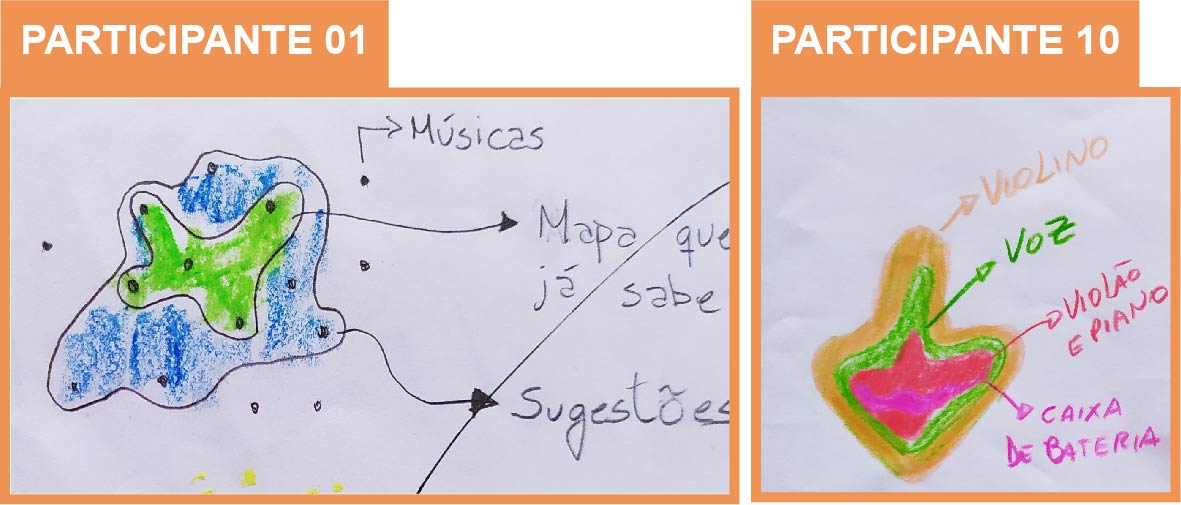 PARTICIPANTE 01
Músicas
Mapa que
já sabe
Sugestões
PARTICIPANTE 10
VIOLINO
VOZ
VIOLÃO
E PIANO
CAIXA
DE BATERIA